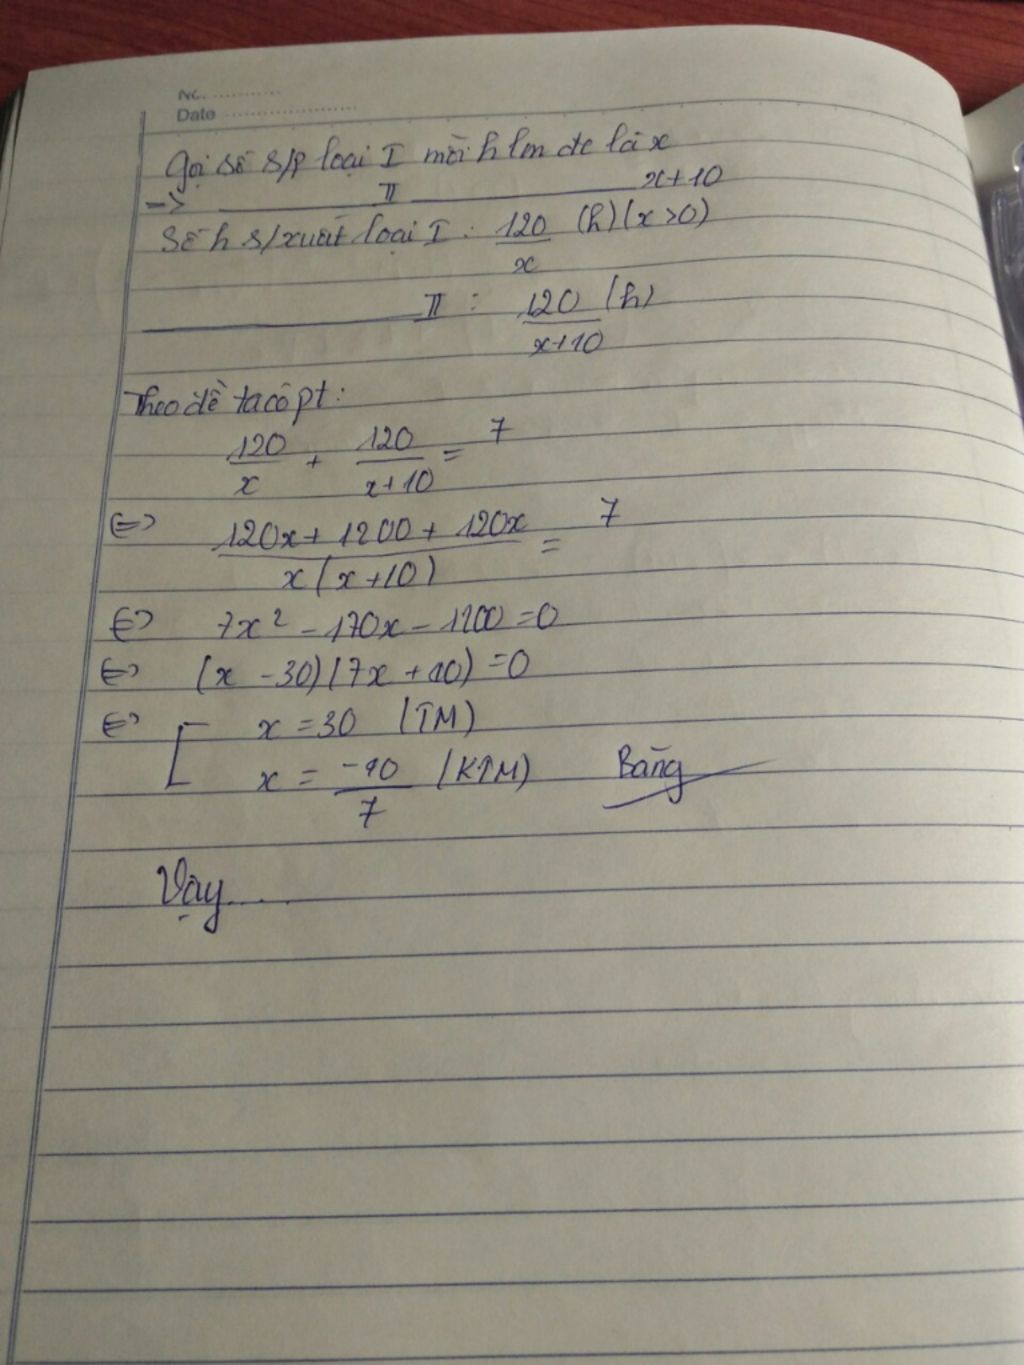 No. ............
Date .....................
Gọi số s/p loại I mỗi h lm đc là x
-> ______ II ______ x+10
Số h s/xuất loại I : 120/x (h) (x>0)
______ II : 120/(x+10) (h)
Theo đề ta có pt:
120/x + 120/(x+10) = 7
<=> (120x + 1200 + 120x)/(x(x+10)) = 7
<=> 7x² - 170x - 1200 = 0
<=> (x - 30)(7x + 40) = 0
<=> [ x = 30 (TM)
x = -40/7 (KTM) Băng
Vậy.....